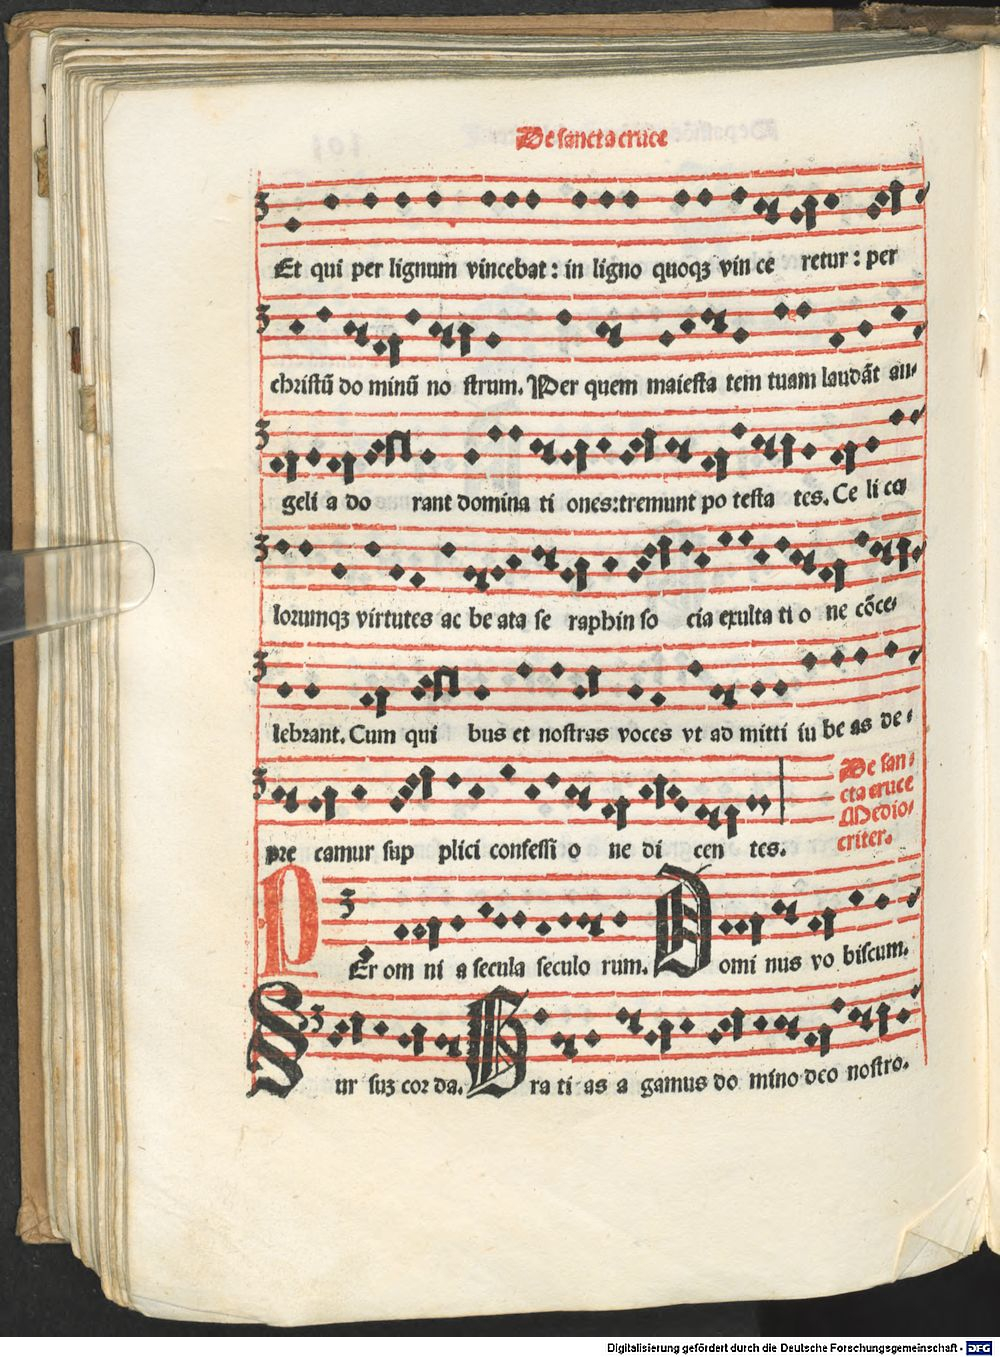 De sancta cruce
Et qui per lignum vincebat: in ligno quoqꝫ vin ce retur: per
christū do minū no strum. Per quem maiesta tem tuam laudāt an-
geli a do rant domina ti ones: tremunt po testa tes. Ce li ce
lorumqꝫ virtutes ac be ata se raphin so cia exulta ti o ne cōce-
lebrant. Cum qui bus et nostras voces vt ad mitti iu be as de-
pre camur sup plici confessi o ne di cen tes.
De san-
cta cruce
Medio-
criter.
PEr om ni a secula seculo rum. Domi nus vo biscum.
Sur suꝫ cor da. Gra ti as a gamus do mino deo nostro.
Digitalisierung gefördert durch die Deutsche Forschungsgemeinschaft - DFG